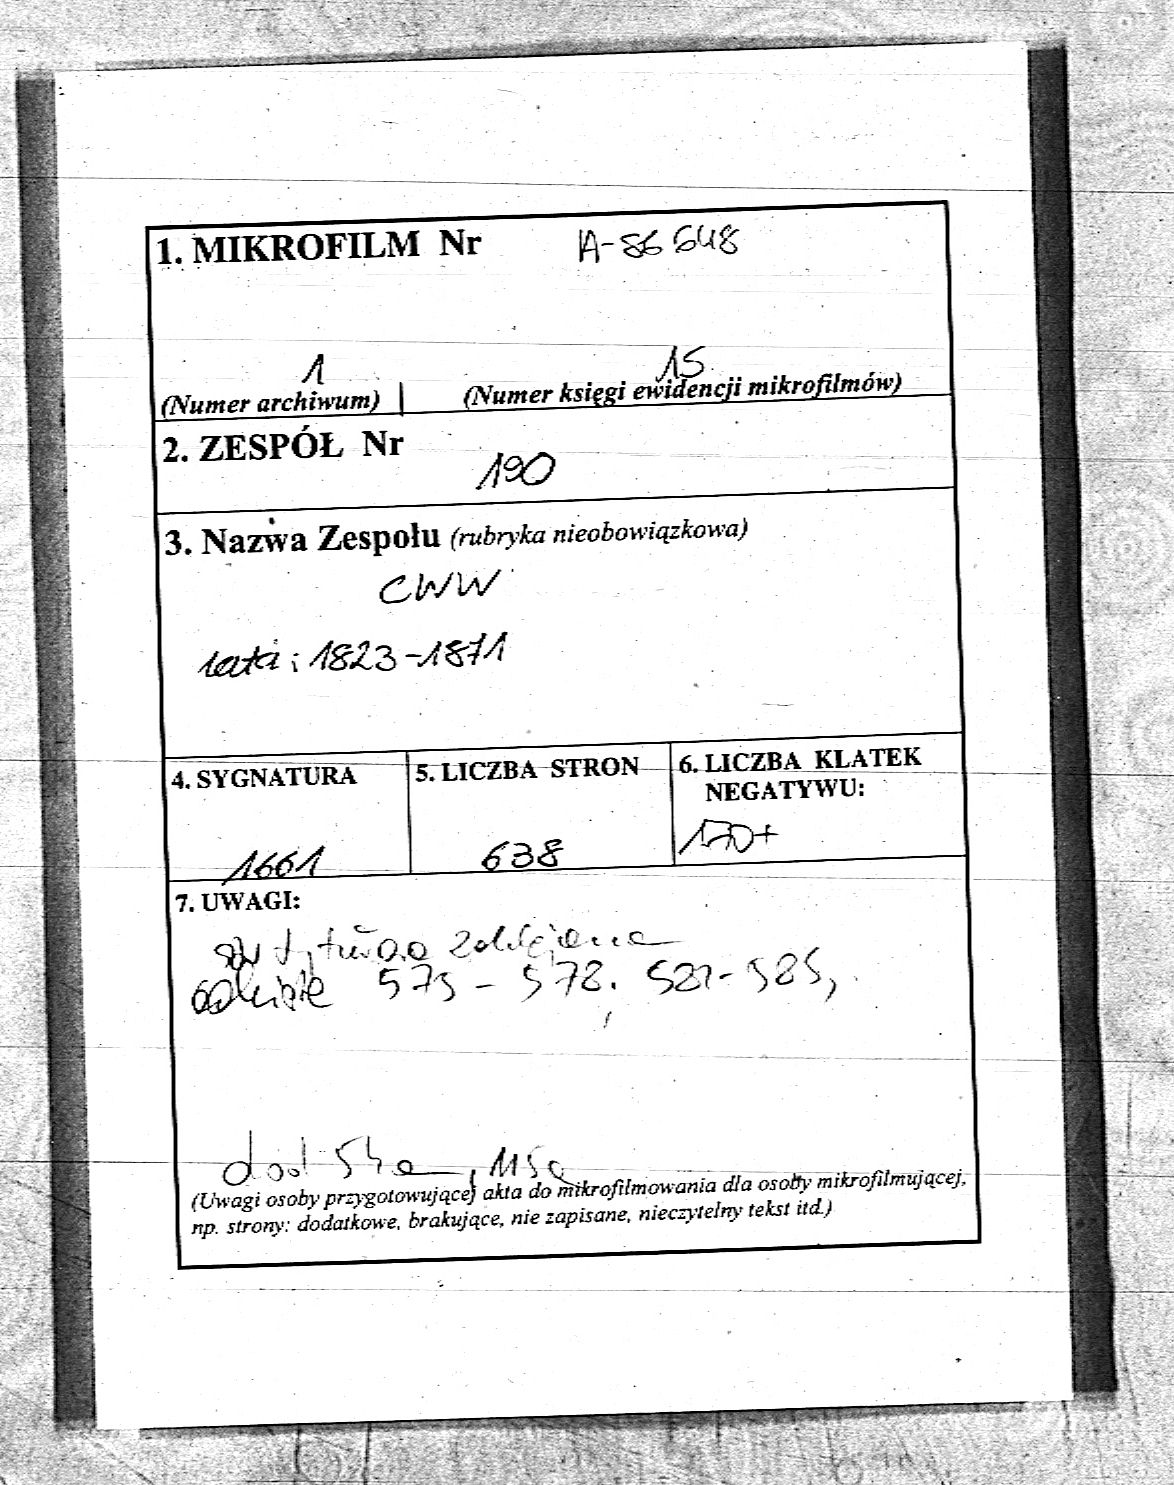 1. MIKROFILM Nr A-86648
1 15
(Numer archiwum) (Numer księgi ewidencji mikrofilmów)
2. ZESPÓŁ Nr
190
3. Nazwa Zespołu (rubryka nieobowiązkowa)
CWW
lata: 1823-1871
4. SYGNATURA 5. LICZBA STRON 6. LICZBA KLATEK
NEGATYWU:
1661 638 170+
7. UWAGI:
(Uwagi osoby przygotowującej akta do mikrofilmowania dla osoby mikrofilmującej,
np. strony: dodatkowe, brakujące, nie zapisane, nieczytelny tekst itd.)